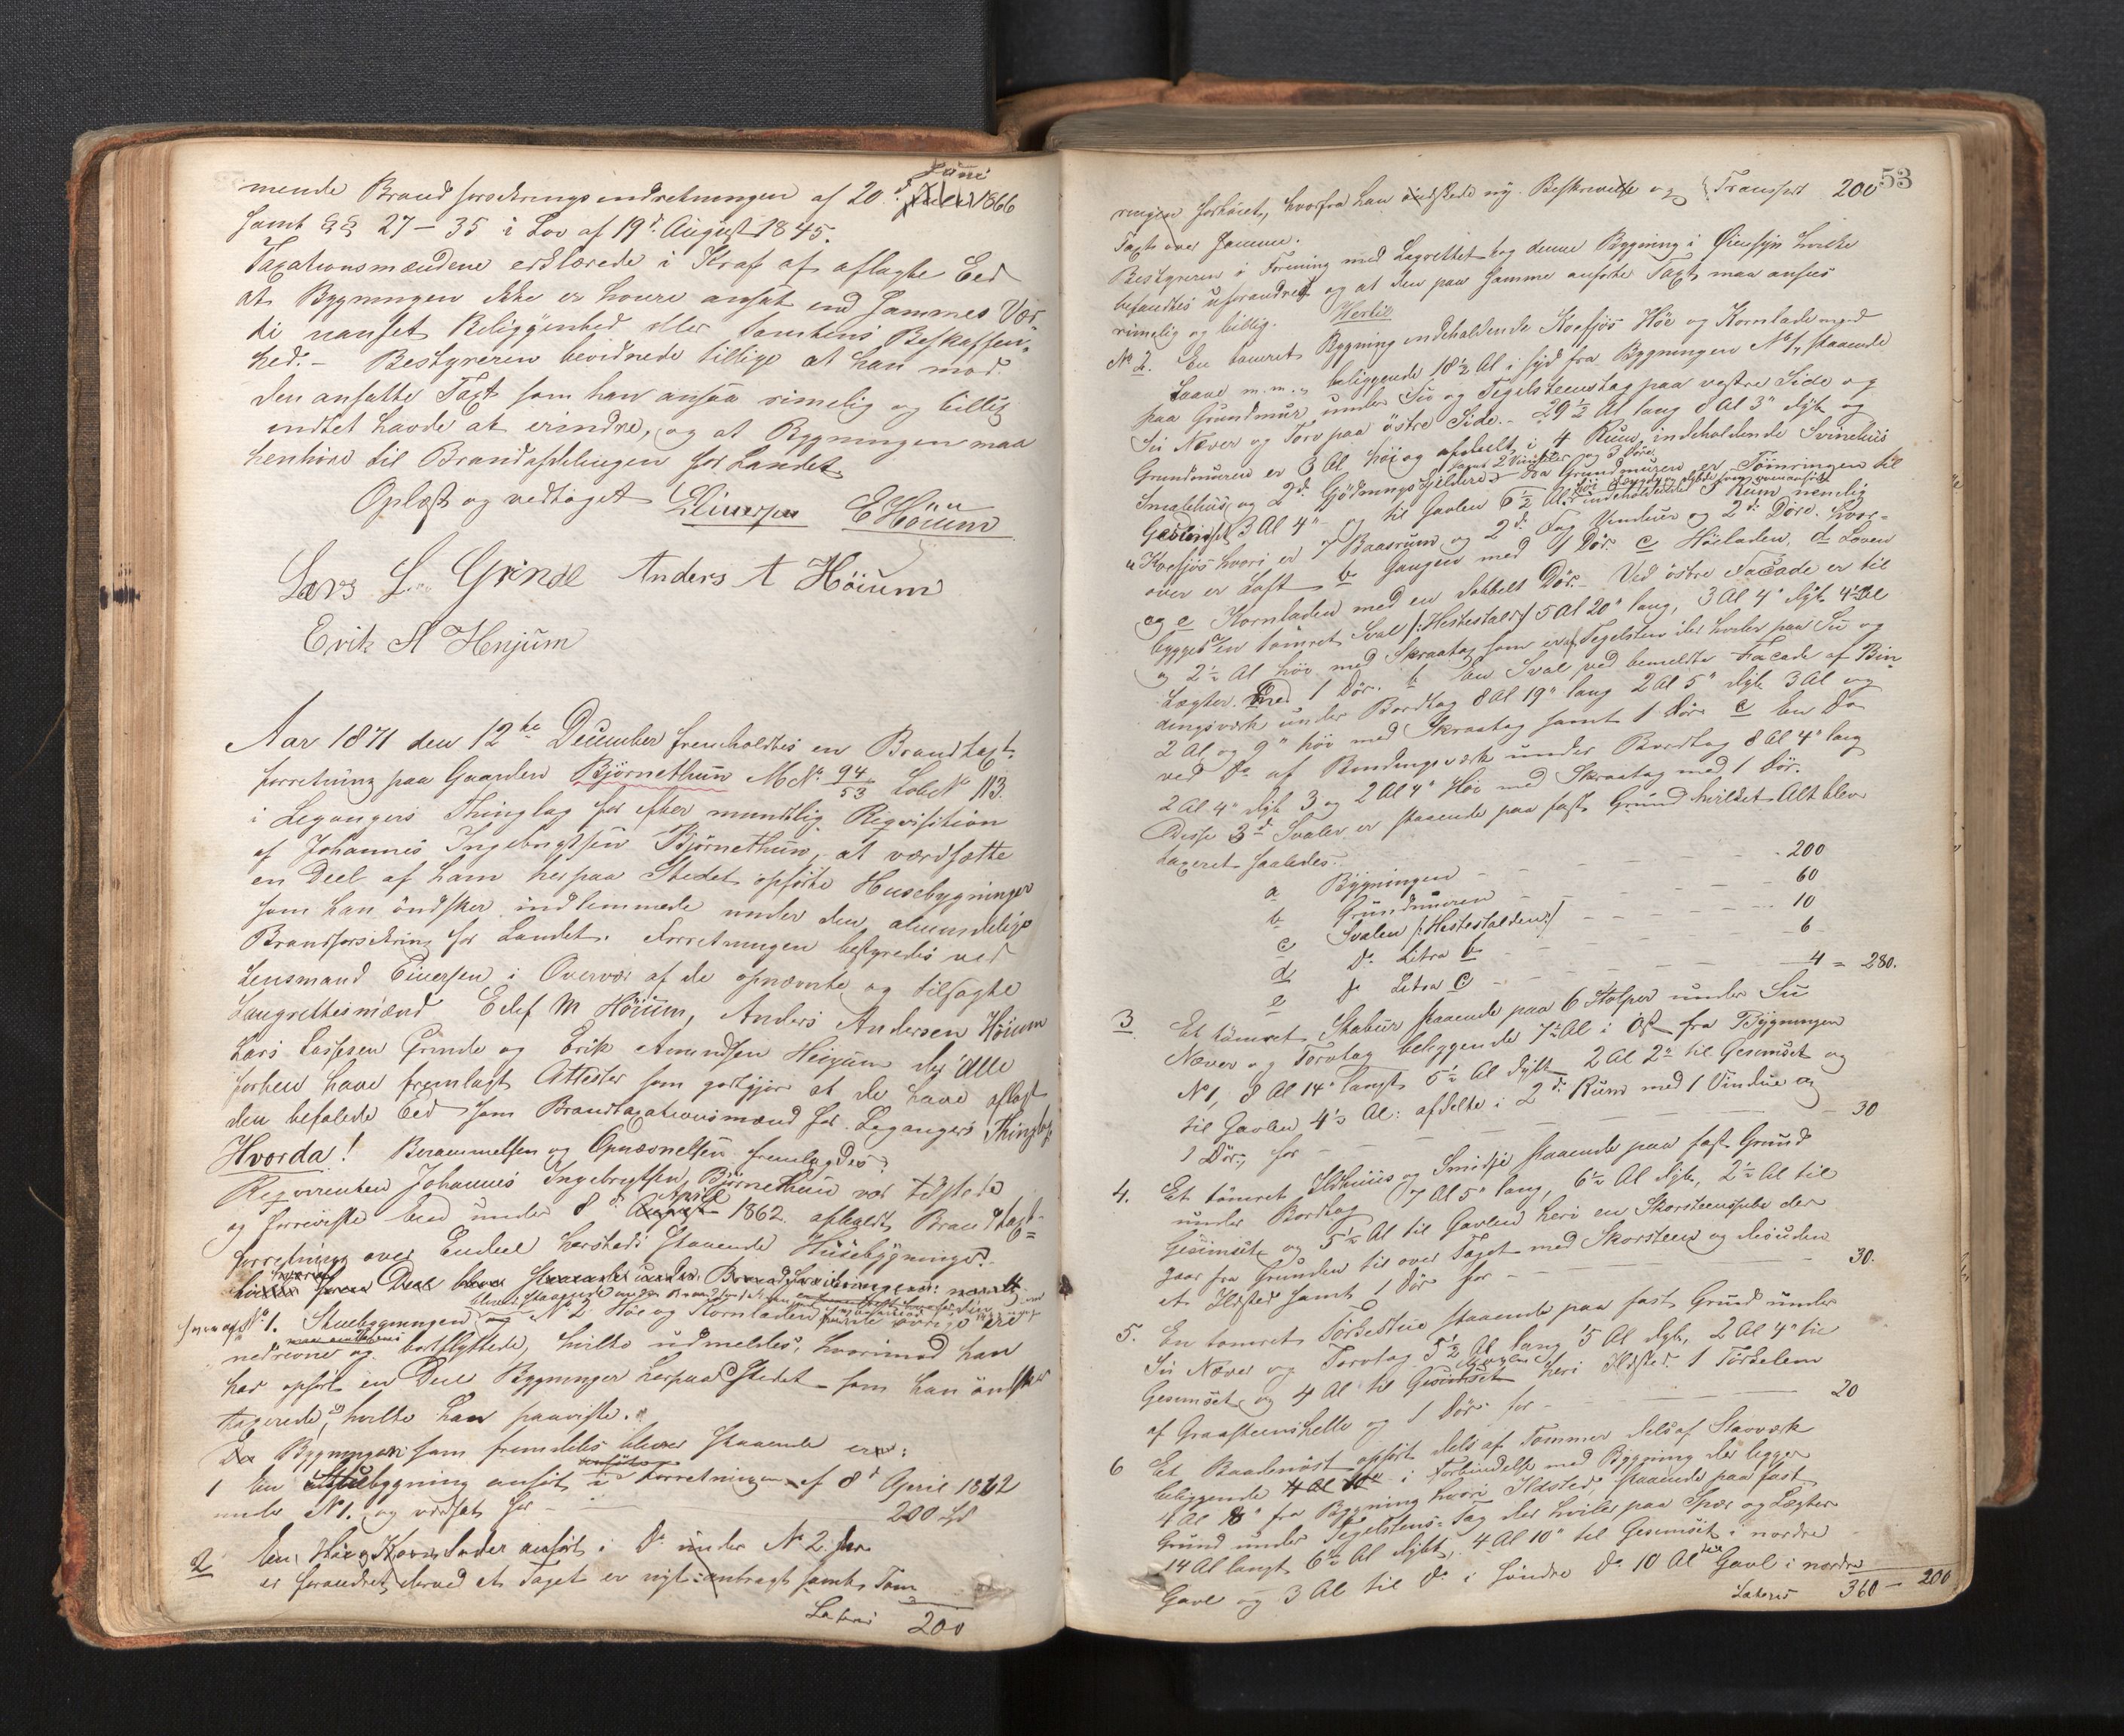 mende Brandforsikringsindretningen af 20d. Juni 1866
samt §§ 27 – 35 i Lov af 19d. August 1845.
Taxationsmændene erklærede i Kraf af aflagte Eed
at Bygningen ikke er høiere ansat end sammes Vær-
di uanset Beliggenhed eller Tomtens Beskaffen-
hed. – Bestyreren bevidnede tillige at han mod
den ansatte Taxt som han ansaa rimelig og billig
indtet havde at erindre, og at Bygningen maa
henhøre til Brandafdelingen for Landet.
Oplæst og vedtaget Eliversen E Höium
Lars L. Grinde Anders A Höium
Erik A Henjum
Aar 1871 den 12te December fremholdtes en Brandtaxt-
forretning paa Gaarden Björnethun M No 94/53 Lob No 113.
i Leganger's Thinglag for efter mundtlig Reqvisition
af Johannes Ingebrigtsen Björnethun, at værdsætte
en Deel af ham her paa Stedet opførte Husebygninger
som han öndsker indlemmede under den almindelige
Brandforsikring for Landet. Forretningen bestyredes ved
Lensmand Eiversen i Overvær af de opnævnte og tilsagte
Laugrettesmænd Edlef M Höium, Anders Andersen Höium
Lars Lassesen Grinde og Erik Amundsen Henjum der Alle
forhen have fremlagt Attester som godtgjør at de have aflagt
den befalede Eed som Brandtaxationsmænd for Leganger's Thinglag
Hvorda! Berammelsen og Opnævnelsen fremlagdes.
Reqvirenten Johannes Ingebrigtsen Björnethun var tilstede
og foreviste den under 8d April 1862 afholdt Brandtaxt-
forretning over Endeel herstedes staaende Husebygninger.
hvoraf Deel staaende under Brandforsikringen: navnlig
No 1. Stuebygningen og No 2 Höe og Kornladen
nedrevne og bortflyttede, hvilke udmeldes, hvorimod han
har opført en Deel Bygninger herpaa Stedet som han öndsker
taxerede, hvilke han paaviste.
Bygningen som fremdeles bliver staaende er:
1 En Stuebygning anført i Forretningen af 8d April 1862
under No 1. og værdsat for – 200 Sp
2 En Höe og Kornlader anført i Do under No 2. har
er forandret derved at Taget er nyt anbragt samt Tøm
Lateris 200
53
ringen forhøiet, hvorfra han öndskede ny Beskrivelse og Transport 200
Taxt over samme.
Bestyreren i Forening med Lagrettet tog denne Bygning i Öiensyn hvilke
befandtes uforandret og at den paa samme anførte Taxt maa ansees
rimelig og billig. Herlis
No 2. En tømret Bygning indeholdende Koefjös Höe og Kornlade med
Laave m.m., beliggende 18½ Al i Syd fra Bygningen No 1, staaende
paa Grundmur under Su og Tegelsteenstag paa vestre Side og
Su Næver og Torv paa östre Side. – 29½ Al lang 8 Al 3" dyb og
Grundmuren er 3 Al høi og afdeelt i 4 Rum indeholdende Svinehus
Smalehus og 2d Gjödningskjelder. Fra Grundmuren er Tømringen til
Gesimset 3 Al 4" og til Gavlen 6½ Al indeholdende 5 Rum nemlig
a Koefjös hvori er 7 Baasrum, og 2d Fag Vinduer og 2d Døre. hvor-
over er Loft b Gangen med 1 Dør. c Höeladen, d Laaven
og e Kornladen med en dobbelt Dør. – Ved östre Facade er til
bygget a en tømret Sval /:Hestestald:/ 5 Al 20" lang, 3 Al 4" dyb 4½ Al
og 2½ Al høi med Skraatag som er af Tegelsten der hviler paa Su og
Lægter. med 1 Dør. b En Sval ved bemeldte Facade af Bin-
dingsværk under Bordtag 8 Al 19" lang 2 Al 5" dyb 3 Al og
2 Al og 9" høi med Skraatag samt 1 Dør c En Do
ved Do af Bindingsværk under Bordtag 8 Al 4" lang
2 Al 4" dyb 3 og 2 Al 4" Høi med Skraatag med 1 Dør.
Disse 3d Svaler er staaende paa fast Grund hvilket Alt blev
taxeret saaledes:
a Bygningen – – – 200
b Grundmuren – – – 60
c Svalen /:Hestestalden:/ – – 10
d Do Litra b – – – 6
e Do Litra c – – – 4 = 280.
3 Et tømret Stabur staaende paa 6 Stolper under Su
Næver og Torvtag beliggende 7½ Al i Öst fra Bygningen
No 1, 8 Al 14" langt 5½ Al dybt 2 Al 2" til Gesimset og
til Gavlen 4½ Al: afdelte i 2d Rum med 1 Vindue og
1 Dør, for – – – 30
4. Et tømret Ildhuus og Smidje staaende paa fast Grund
under Bordtag 7 Al 5" lang, 6½ Al dyb, 2½ Al til
Gesimset og 5½ Al til Gavlen heri en Skorsteenspibe der
gaar fra Grunden til over Taget med Skorsteen og desuden
et Ildsted samt 1 Dør for – – – 30.
5. En tømret Tørkestue staaende paa fast Grund under
Su Næver og Torvtag 5½ Al lang 5 Al dyb, 2 Al 4" til
Gesimset og 4 Al til Gavlen heri Ildsted 1 Tørkelem
af Graasteenshelle og 1 Dør for – – – 20
6 Et Baadenöst opført dels af Tømmer dels af Stavværk
beliggende i Forbindelse med Bygning der ligger
4 Al 8" fra Bygning hvori Ildsted, staaende paa fast
Grund under Tegelsteens Tag der hviler paa Spær og Lægter
14 Al langt 6½ Al dybt, 4 Al 10" til Gesimset i nordre
Gavl og 3 Al til Do i søndre Do 10 Al til Gavl i nordre
Lateris 360 – 200